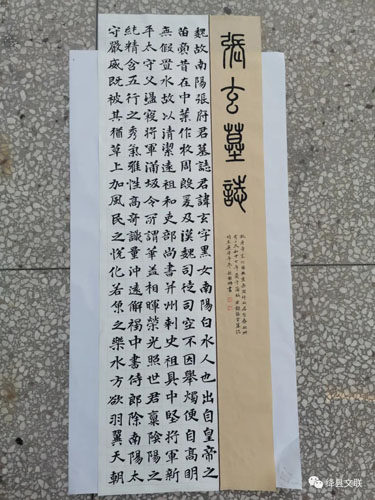 張玄墓誌
魏故南陽張府君墓誌君諱玄字黑女南陽白水人也出自皇帝之
苗裔昔在中葉作牧周殷爰及漢魏司徒司空不因舉燭便自高明
無假置水故以清潔遠祖和吏部尚書并州刺史祖具中堅將軍新
平太守父盪寇將軍蒲坂令所謂華蓋相暉榮光照世君稟陰陽之
純精含五行之秀氣雅性高奇識量沖遠解褐中書侍郎除南陽太
守嚴威既被其猶草上加風民之悅化若魚之樂水方欲羽翼天朝
绛县文联